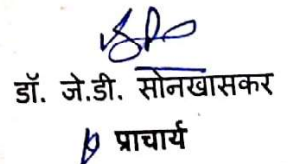 डॉ. जे.डी. सोनखासकर
प्राचार्य